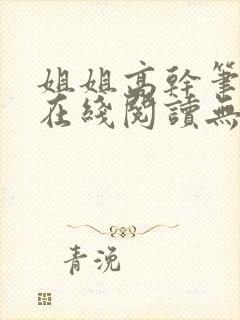 姐姐高幹筆
在綫閱讀無
青浼